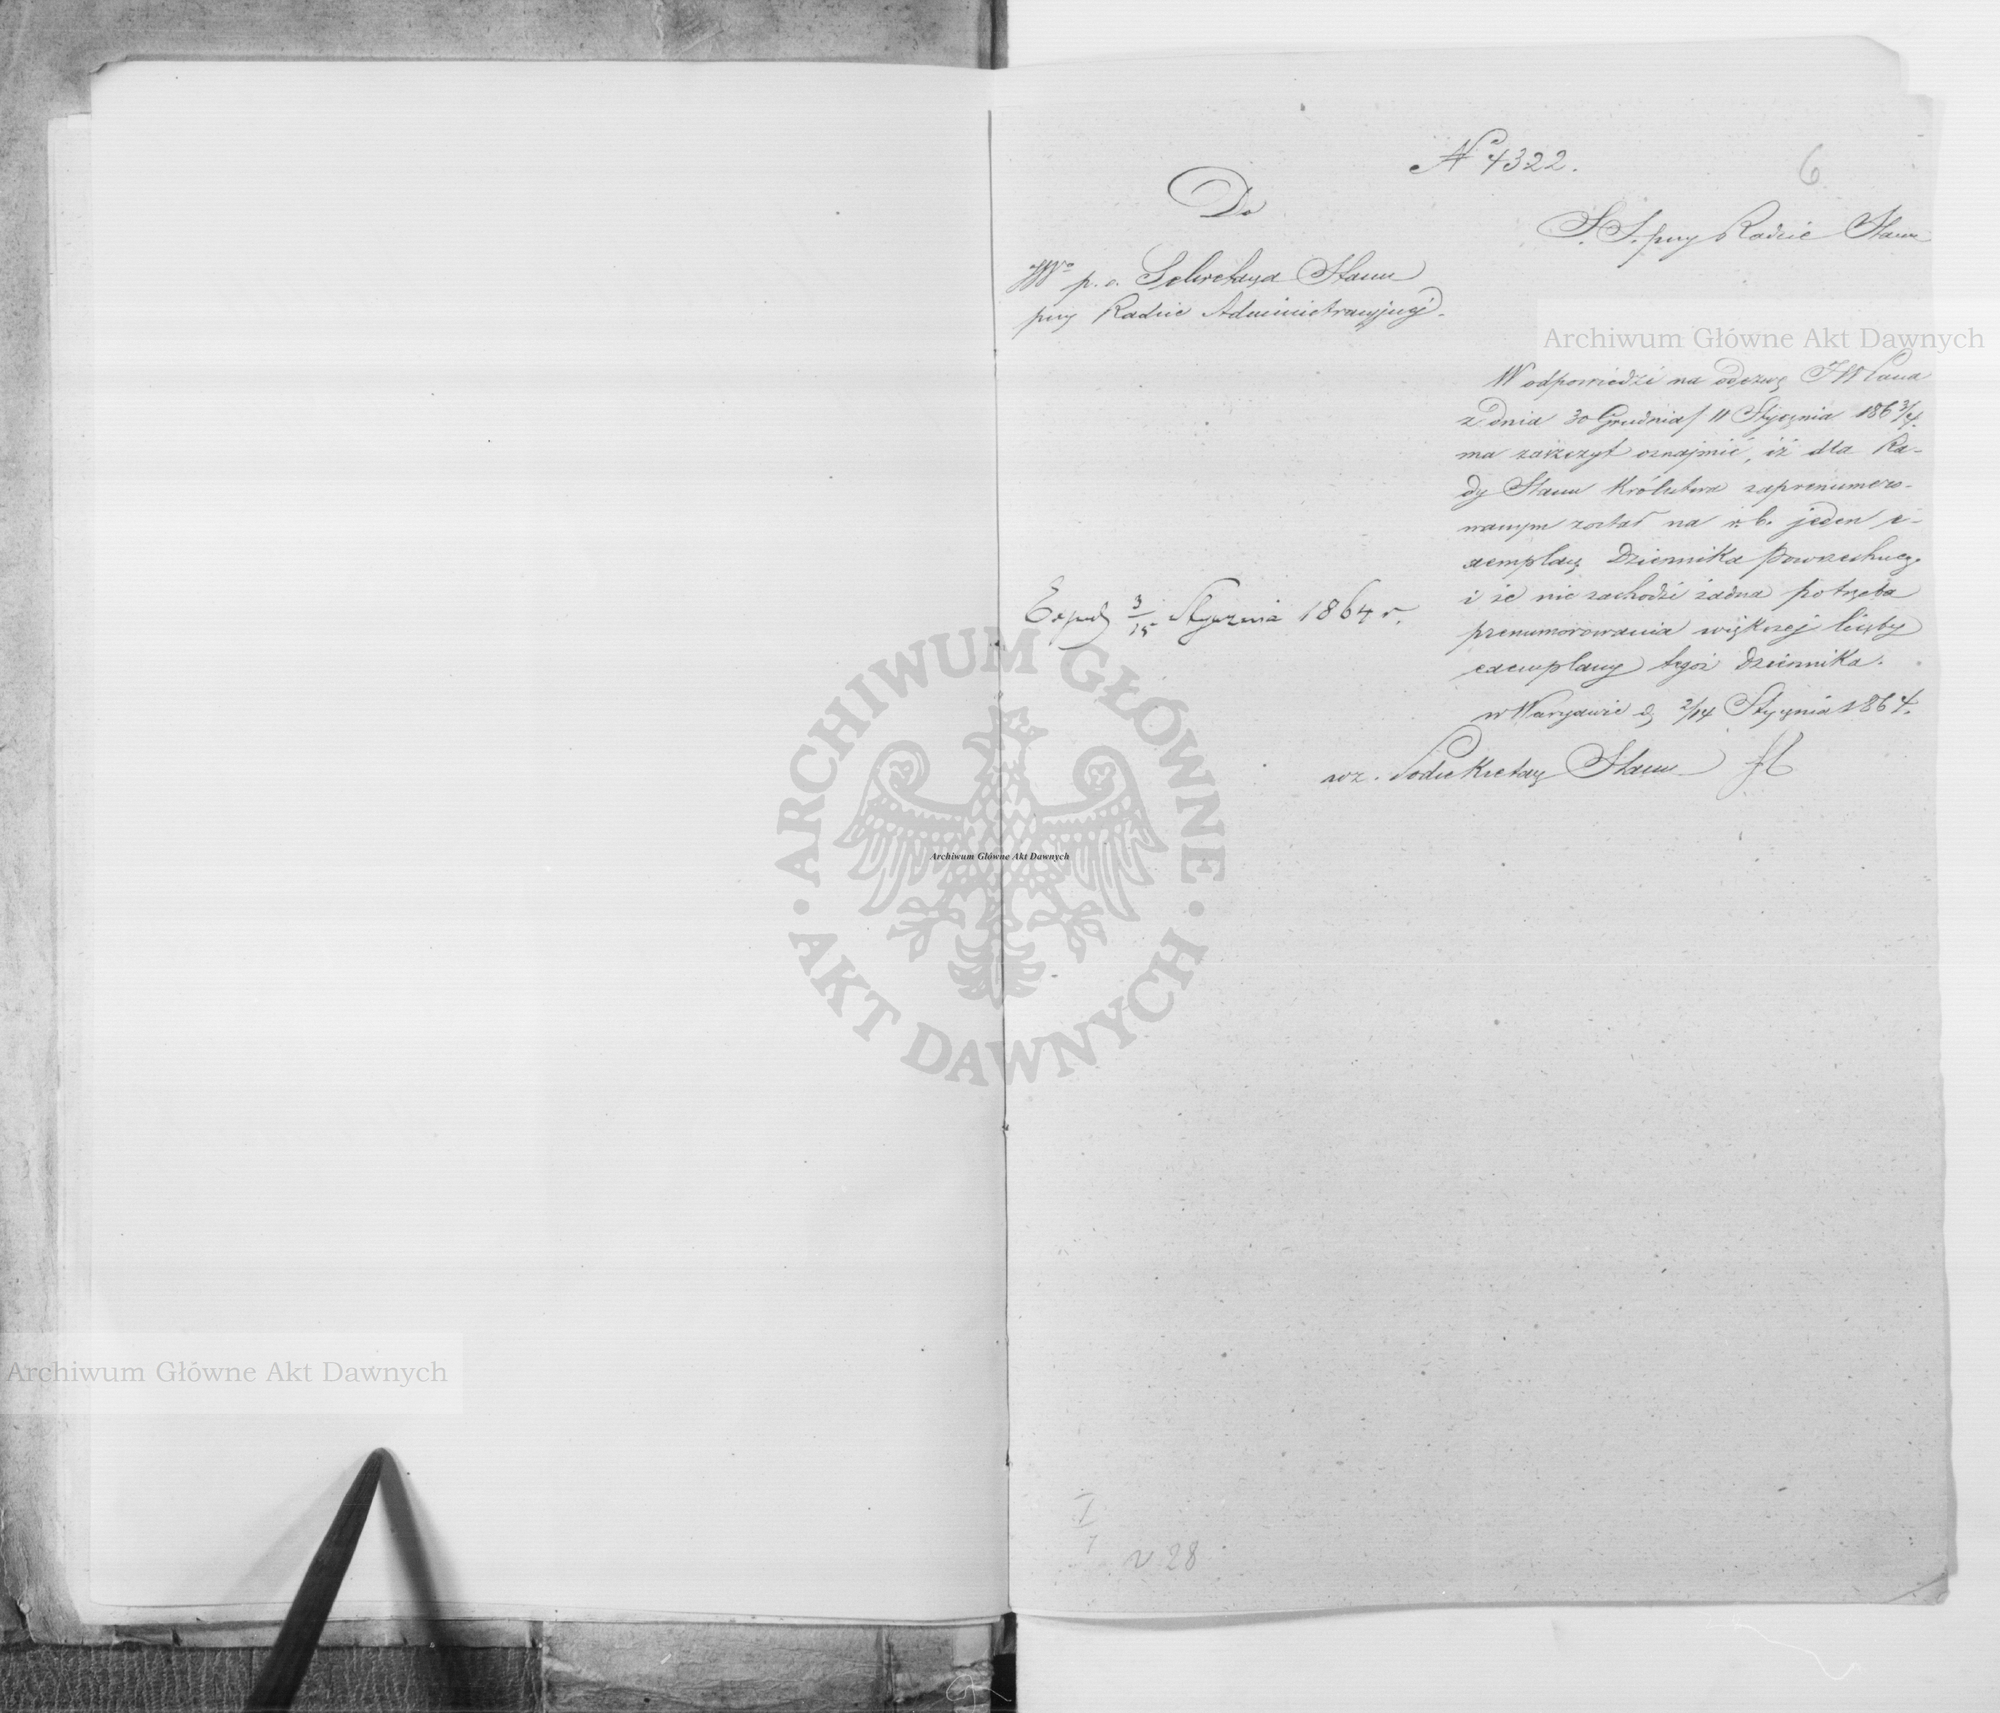 N 4322.
6
Do
JWo p. o. Sekretarza Stanu
przy Radzie Administracyjnej.
S. S. przy Radzie Stanu
W odpowiedzi na odezwę JW Pana
z dnia 30 Grudnia/11 Stycznia 1863/4.
ma zaszczyt oznajmić, iż dla Ra-
dy Stanu Królestwa zaprenumero-
wanym został na r. b. jeden e-
xemplarz Dziennika Powszechnego
i że nie zachodzi żadna potrzeba
prenumerowania większej liczby
exemplarzy tegoż Dziennika.
w Warszawie d. 2/14 Stycznia 1864.
Podsekretarz Stanu
Exped. 3/15 Stycznia 1864 r.
I
7
28
Archiwum Główne Akt Dawnych
ARCHIWUM GŁÓWNE · AKT DAWNYCH ·
Archiwum Główne Akt Dawnych
Archiwum Główne Akt Dawnych